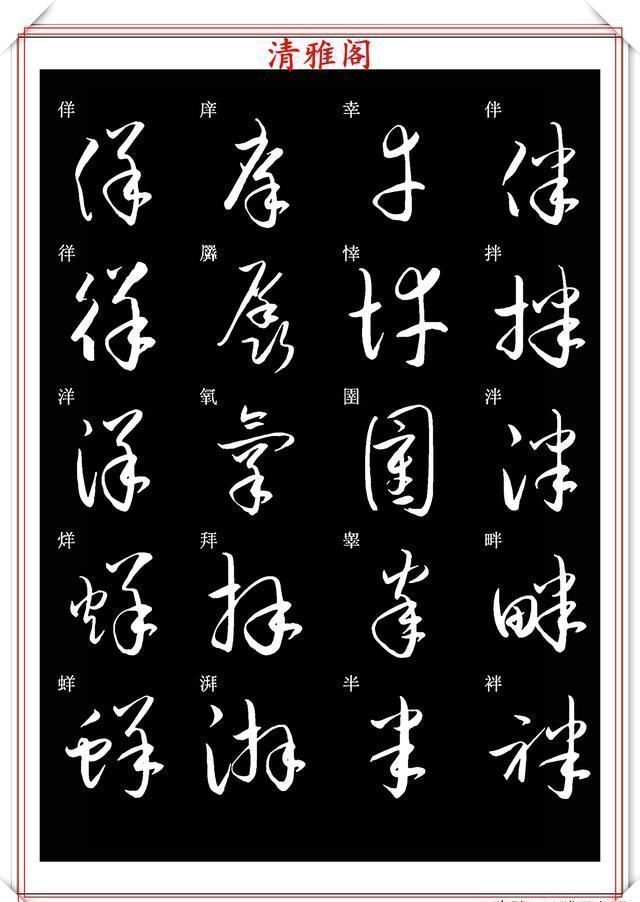 清雅阁
佯 庠 幸 伴
徉 羼 悻 拌
洋 氧 圉 泮
烊 拜 睾 畔
蛘 湃 半 袢